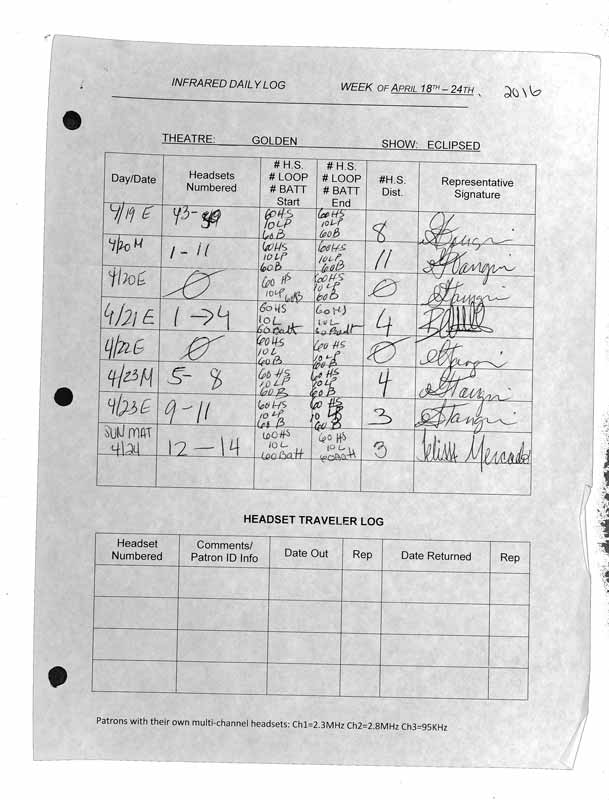 INFRARED DAILY LOG WEEK OF APRIL 18TH – 24TH, 2016
THEATRE: GOLDEN SHOW: ECLIPSED
Day/Date Headsets Numbered # H.S. # LOOP # BATT Start # H.S. # LOOP # BATT End #H.S. Dist. Representative Signature
4/19 E 43- 60HS 10LP 60B 60HS 10LP 60B 8
4/20 M 1-11 60HS 10LP 60B 60HS 10LP 60B 11
4/20E Ø 60 HS 10LP 60B 60HS 10LP 60B Ø
4/21 E 1→4 60HS 10L 60Batt 60HS 10L 60Batt 4
4/22E Ø 60HS 10L 60B 60 HS 10LP 60B Ø
4/23M 5-8 60 HS 10LP 60B 60HS 10LP 60B 4
4/23E 9-11 60HS 10LP 60B 60 HS 10 LP 60B 3
SUN MAT 4/24 12-14 60HS 10L 60Batt 60 HS 10L 60Batt 3 Mercado
HEADSET TRAVELER LOG
Headset Numbered Comments/ Patron ID Info Date Out Rep Date Returned Rep
Patrons with their own multi-channel headsets: Ch1=2.3MHz Ch2=2.8MHz Ch3=95KHz